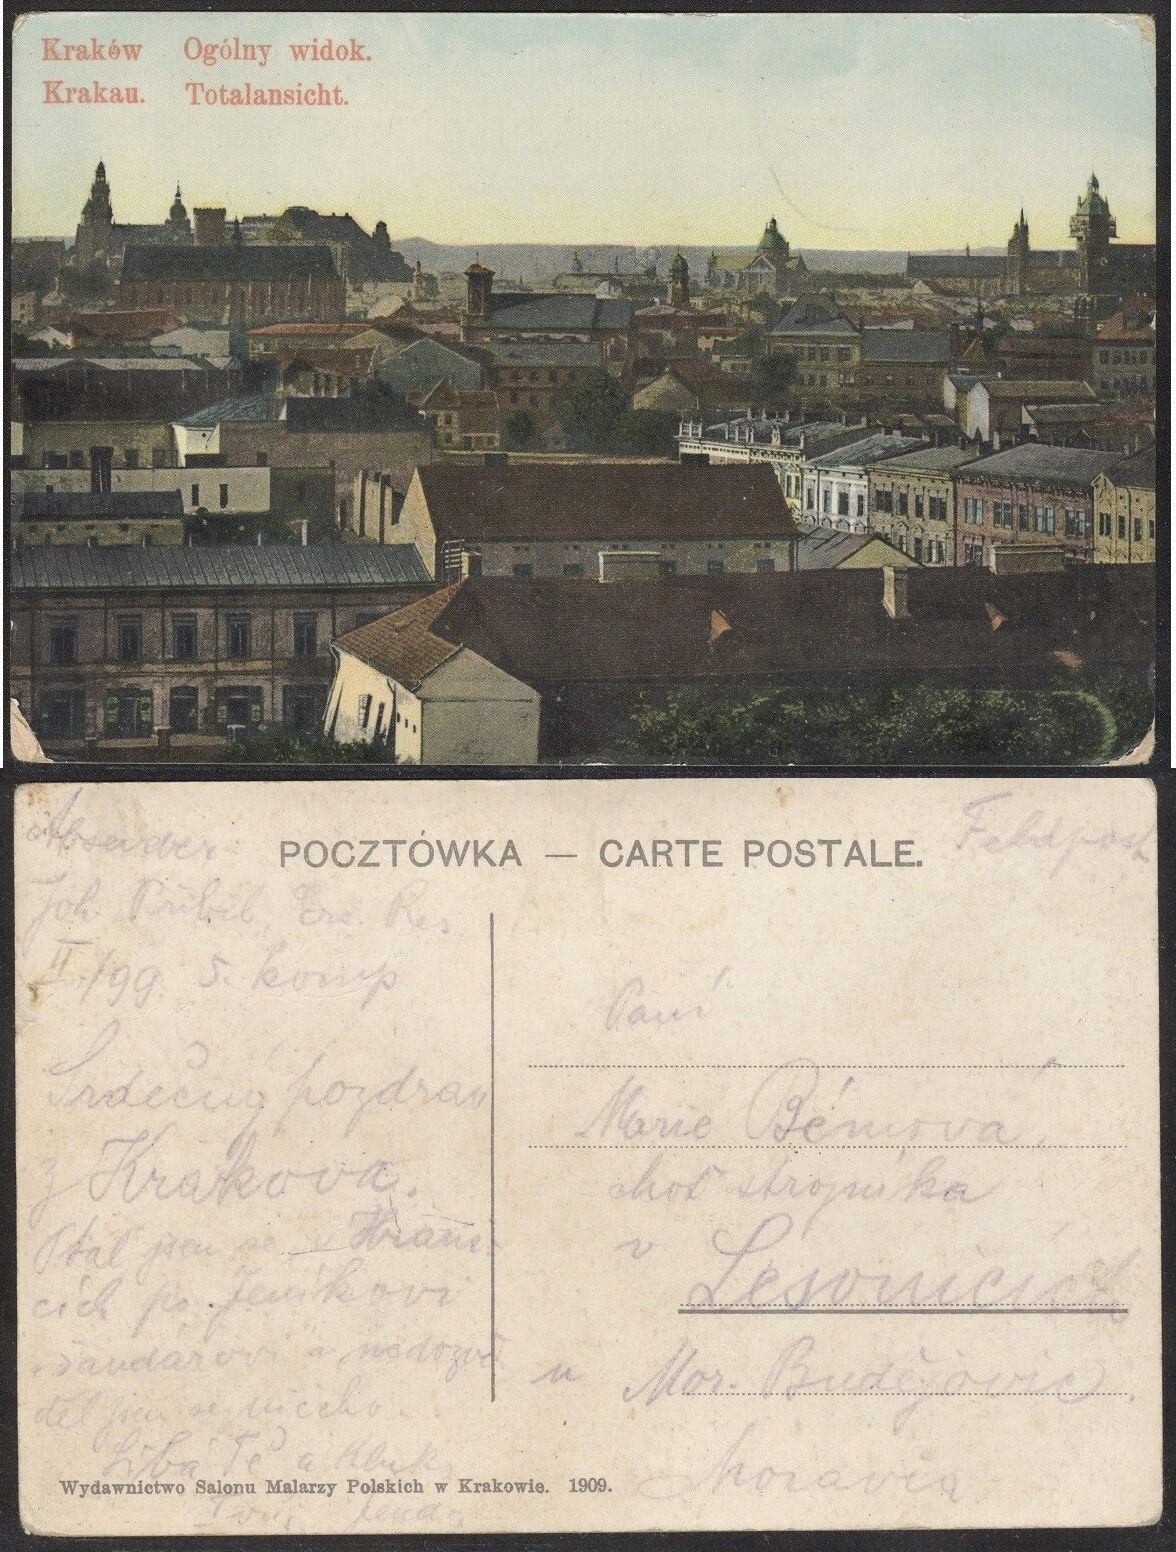 Kraków Ogólny widok.
Krakau. Totalansicht.
Absender:
POCZTÓWKA — CARTE POSTALE.
Feldpost
Joh. Přibil, Ers. Res.
II./99. 5. komp
Srdečný pozdrav
z Krakova.
Ptal jsem se v Hranicích
po Jeníkovi
a nedozvěděl
jsem se ničeho.
Líbá Tě a kluk
Tvůj Jenda
Paní
Marie Bémová,
choť strojníka
v
Lesonicích
u Mor. Budějovic
Moravia
Wydawnictwo Salonu Malarzy Polskich w Krakowie. 1909.